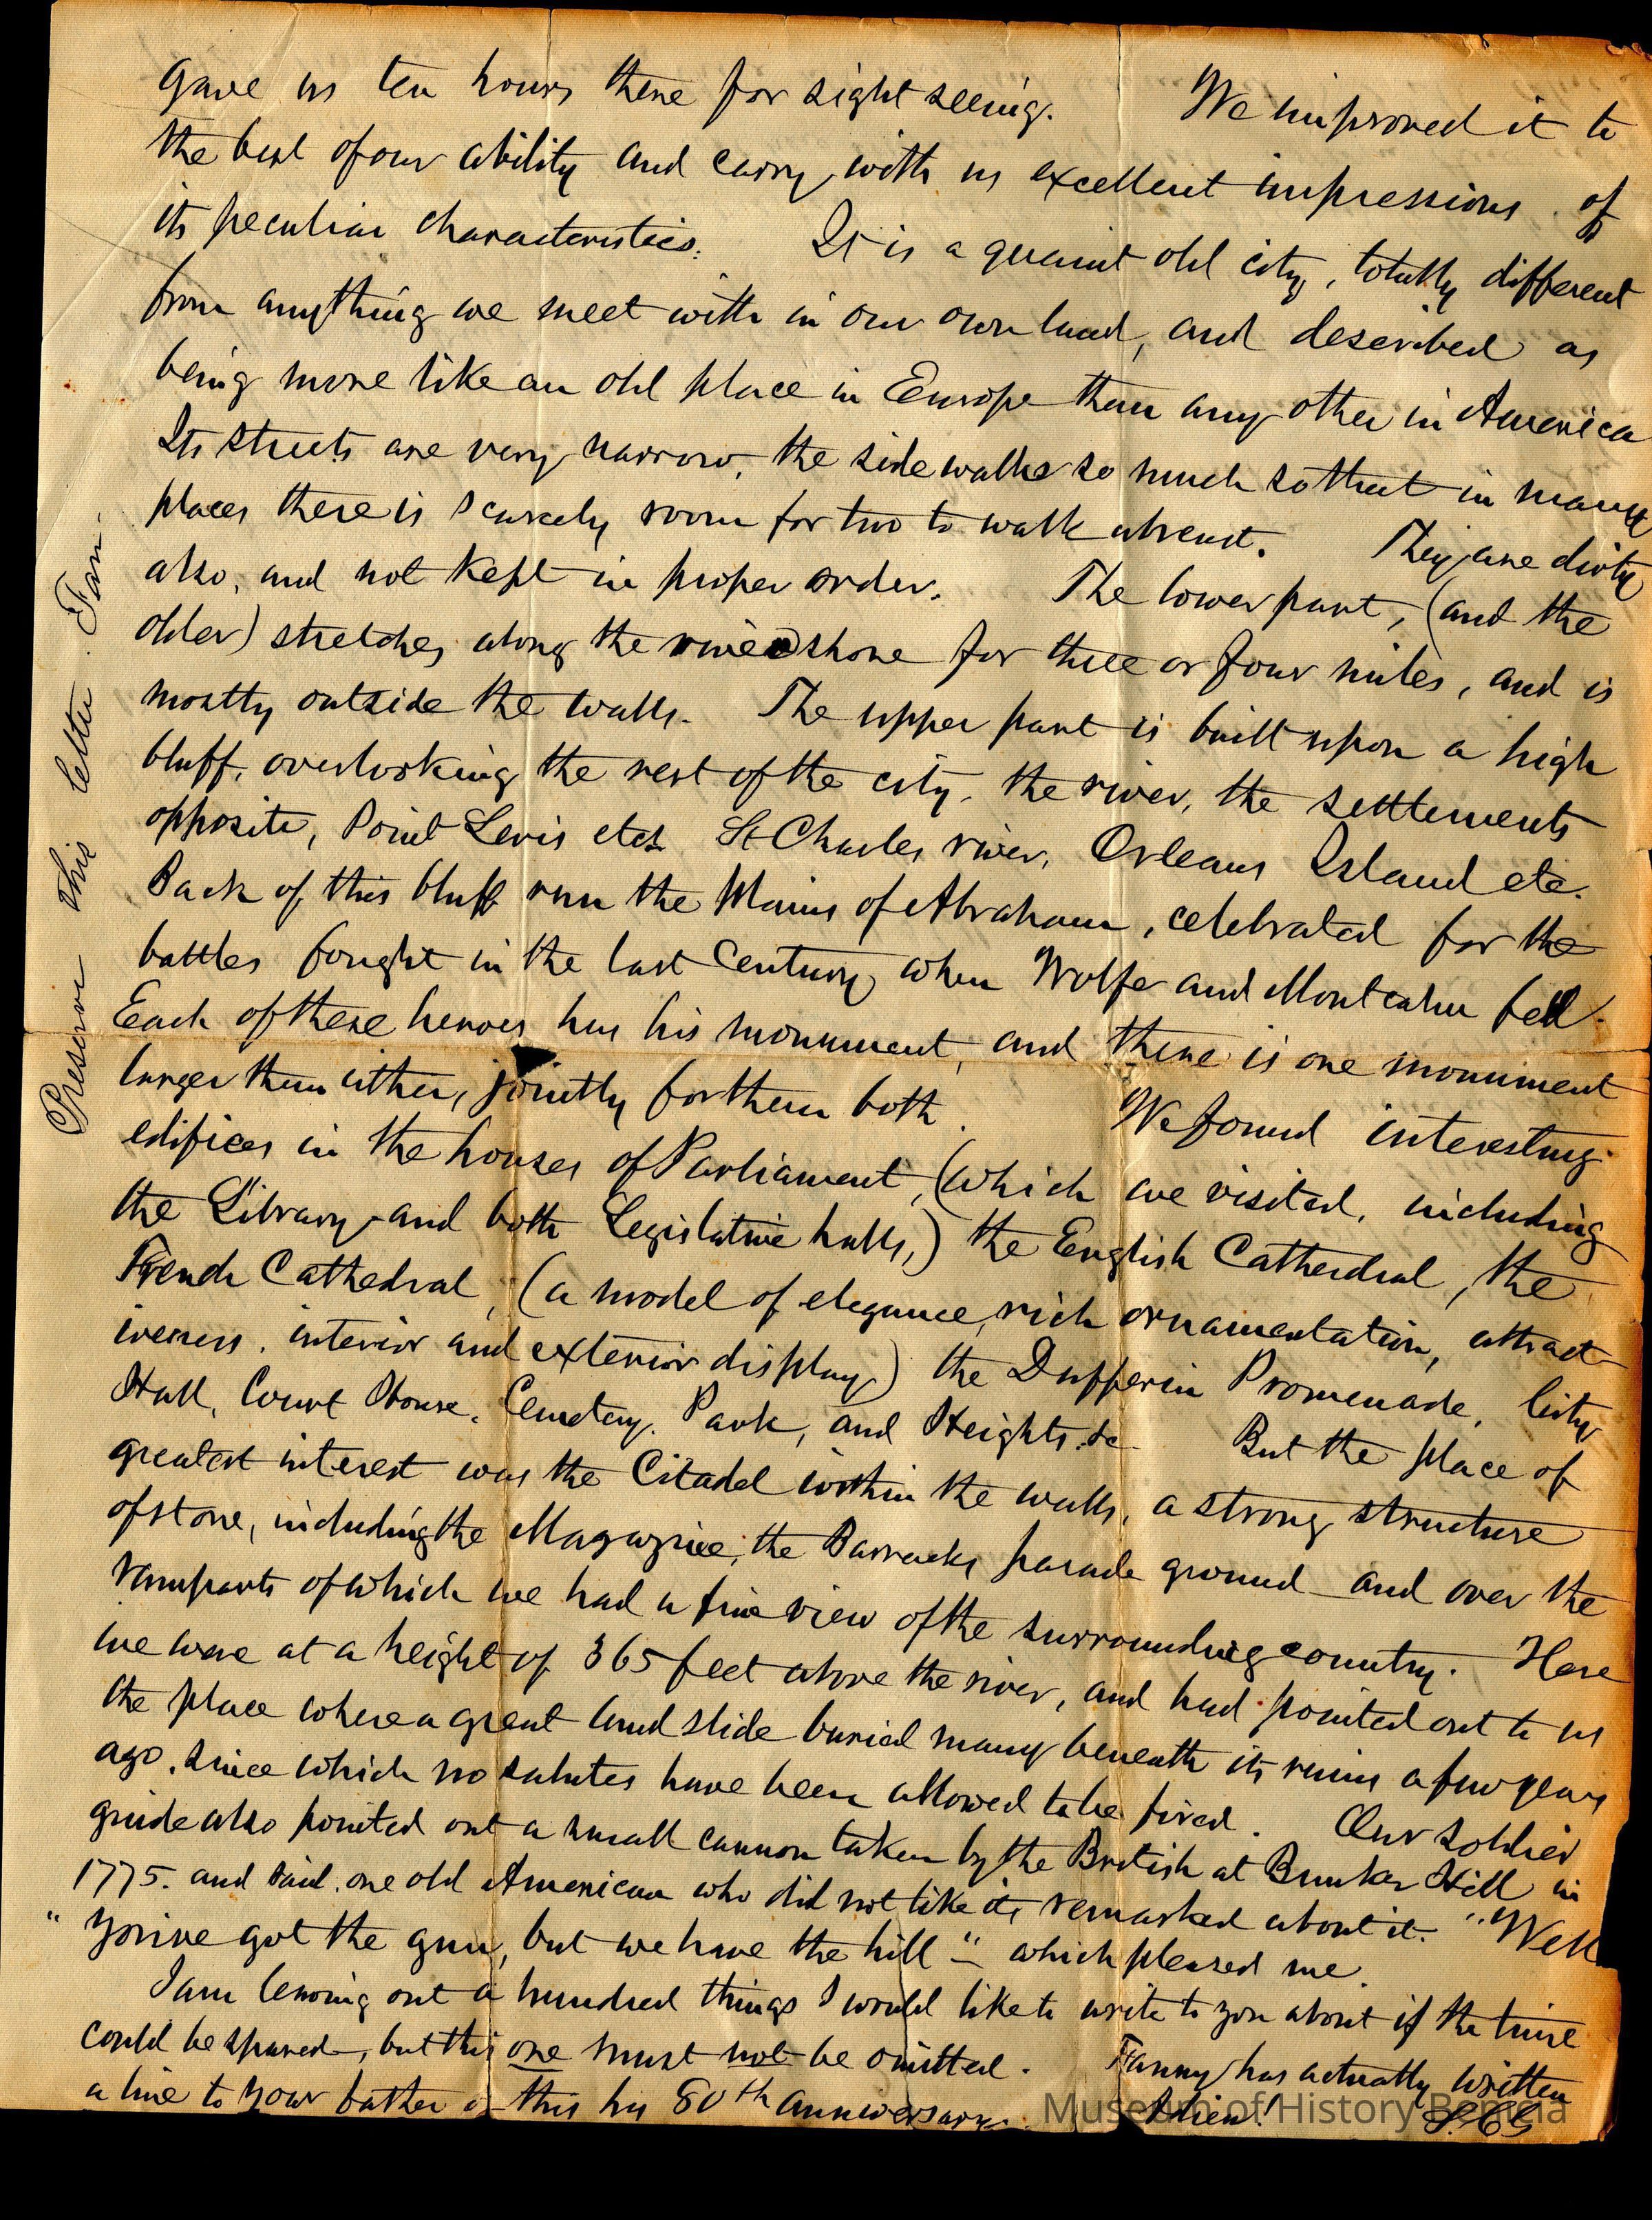 gave us ten hours there for sight seeing. We improved it to
the best of our ability and carry with us excellent impressions of
its peculiar characteristics. It is a quaint old city, totally different
from anything we meet with in our own land, and described as
being more like an old place in Europe than any other in America
Its streets are very narrow, the side walks so much so that in many
places there is scarcely room for two to walk abreast. They are dirty
also, and not kept in proper order. The lower part, (and the
older) stretches along the river shore for three or four miles, and is
mostly outside the walls. The upper part is built upon a high
bluff, overlooking the rest of the city, the river, the settlements
opposite, Point Levis etc. St Charles river, Orleans Island etc.
Back of this bluff run the Plains of Abraham, celebrated for the
battles fought in the last century when Wolfe and Montcalm fell.
Each of these heroes has his monument, and there is one monument
larger than either, jointly for them both. We found interesting
edifices in the houses of Parliament, (which we visited, including
the Library and both Legislative halls,) the English Cathedral, the
French Cathedral, (a model of elegance, rich ornamentation, attract-
iveness, interior and exterior display) the Dufferin Promenade, City
Hall, Court House, Cemetery, Park, and Heights &c. But the place of
greatest interest was the Citadel within the walls, a strong structure
of stone, including the Magazine, the Barracks, parade ground and over the
ramparts of which we had a fine view of the surrounding country. Here
we were at a height of 365 feet above the river, and had pointed out to us
the place where a great land slide buried many beneath its ruins a few years
ago, since which no salutes have been allowed to be fired. Our soldier
guide also pointed out a small cannon taken by the British at Bunker Hill in
1775. and said, one old American who did not like it, remarked about it. "Well
"you've got the gun, but we have the hill" – which pleased me.
I am leaving out a hundred things I would like to write to you about if the time
could be spared, but this one must not be omitted. Fanny has actually written
a line to your father on this his 80th anniversary. Adieu! L. C. G
Preserve this letter. Fan.
Museum of History Benicia